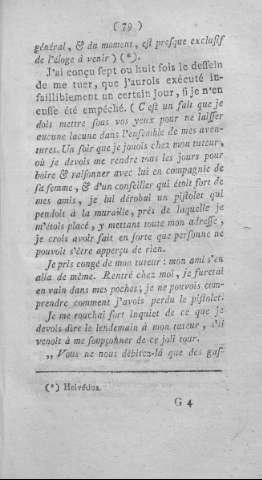 ( 79 )
général, & du moment, est presque exclusif
de l'éloge à venir) (*).
J'ai conçu sept ou huit fois le dessein
de me tuer, que j'aurois exécuté in-
failliblement un certain jour, si je n'en
eusse été empêché. (C'est un fait que je
dois mettre sous vos yeux pour ne laisser
aucune lacune dans l'ensemble de mes aven-
tures. Un soir que je jouois chez mon tuteur,
où je devois me rendre tous les jours pour
boire & raisonner avec lui en compagnie de
sa femme, & d'un conseiller qui étoit fort de
mes amis, je lui dérobai un pistolet qui
pendoit à la muraille, près de laquelle je
m'étois placé, y mettant toute mon adresse,
je crois avoir fait en sorte que personne ne
pouvoit s'être apperçu de rien.
Je pris congé de mon tuteur : mon ami s'en
alla de même. Rentré chez moi, je furetai
en vain dans mes poches; je ne pouvois com-
prendre comment j'avois perdu le pistolet.
Je me couchai fort inquiet de ce que je
devois dire le lendemain à mon tuteur, s'il
venoit à me soupçonner de ce joli tour.
„ Vous ne nous débitez-là que des gas-
(*) Helvétius.
G 4